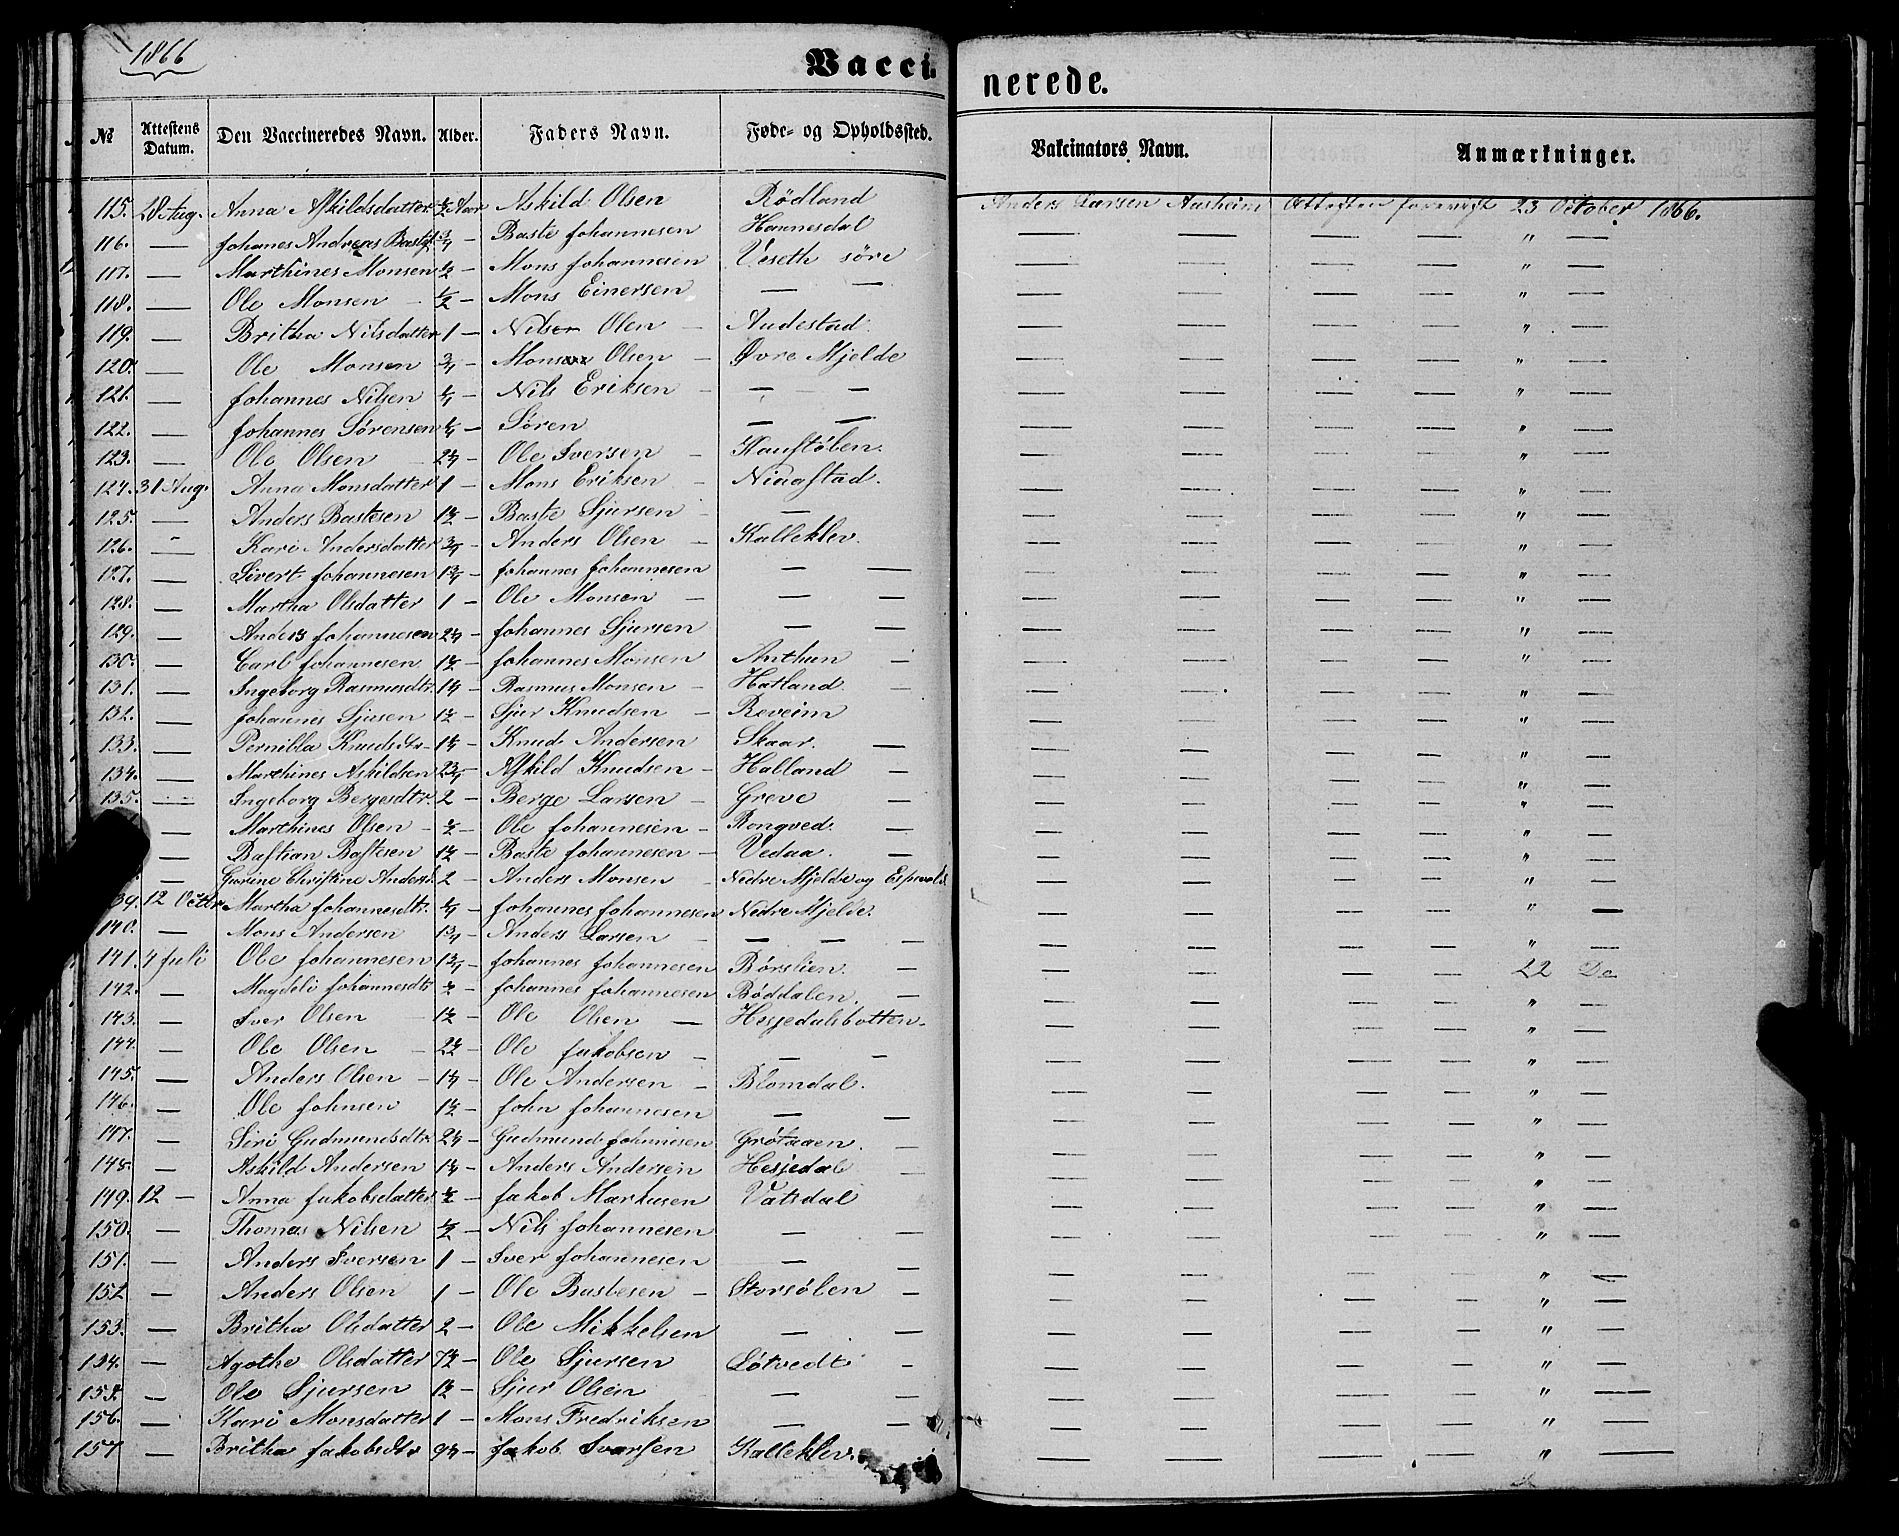 1866
Vacci- nerede.
№ Attestens Datum. Den Vaccineredes Navn. Alder. Faders Navn. Føde- og Opholdssted. Vakcinators Navn. Anmærkninger.
115. 28 Aug. Anna Askildsdatter ½ Aar Askild Olsen Rödland Anders Larsen Aasheim Attesten forevist 23 October 1866.
116. — Johanes Andreas — Baste Johannesen Hannesdal — — — — " —
117. — Marthines Monsen ½ — Mons Johannesen Veseth söre — — — — " —
118. — Ole Monsen — ½ — Mons Einersen — — — — — — " —
119. — Britha Nilsdatter 1 — Nils Olen — Audestad — — — — " —
120. — Ole Monsen ¾ — Mons Olsen — Øvre Mjelde — — — — " —
121. — Johannes Nilsen ¼ — Nils Eriksen — — — — — — — " —
122. — Johannes Sörensen ¼ — Sören — — — — — — " —
123. — Ole Olsen — 2¼ — Ole Iversen — Kaustølen. — — — — " —
124. 31 Aug. Anna Monsdatter 1 — Mons Eriksen — — — — — " —
125. — Anders Bastesen 1½ — Baste Sjursen — — — — — — " —
126. — Kari Andersdatter ¾ — Anders Olsen — Kalleklev. — — — — " —
127. — Sivert Johannesen 1¾ — Johannes Johannesen — — — — — — " —
128. — Martha Olsdatter 1 — Ole Monsen — — — — — — — " —
129. — Anders Johannesen 2¼ — Johannes Sjursen — — — — — — " —
130. — Carl Johannesen 1½ — Johannes Monsen Anthun — — — — — " —
131. — Ingeborg Rasmusdtr. 1¼ — Rasmus Monsen — Hatland. — — — — — " —
132. — Johannes Sjusen 1½ — Sjur Knudsen — Reveim — — — — " —
133. — Pernilla Knudsdtr — 1¼ — Knud Andersen Skaar. — — — — — " —
134. — Marthines Askildsen 2¾ — Askild Knudsen — Halland — — — — — " —
135. — Ingeborg Bergesdtr. 2 — Berge Larsen — Greve — — — — — " —
— Marthines Olsen — ½ — Ole Johannesen — Rongved. — — — — — " —
— Bastian Bastesen 1½ — Baste Johannesen — Vedaa. — — — — — " —
— Gurine Christine Andersd. 2 — Anders Monsen — Nedre Mjelde og — — — — " —
39. 12 Octbr. Martha Johannesdtr. ¼ — Johannes Johannesen Nedre Mjelde. — — — — " —
140. — Mons Andersen 1¾ — Anders Larsen — — — — — — — — " —
141. 4 Juli Ole Johannesen 1¾ — Johannes Johannesen Børslien. — — — — — 22 Do
142. — Magdeli Johannesdtr. ½ — Johannes Johannesen Bøddalen. — — — — — " —
143. — Iver Olsen — 1½ — Ole Olsen — Hesjedalsbotten. — — — — " —
144. — Ole Olsen — 2½ — Ole Jakobsen — — — — — — — " —
145. — Anders Olsen — 1¼ — Ole Andersen — Blomdal. — — — — " —
146. — Ole Johnsen 1½ — John Johannesen — — — — — — " —
147. — Siri Gudmundsdtr. 2¼ — Gudmund Johannesen Grötaaen. — — — — — " —
148. — Askild Andersen 1¼ — Anders Andersen Hesjedal — — — — — " —
149. 12 — Anna Jakobsdatter ½ — Jakob Markusen Vatsdal — — — — " —
150. — Thomas Nilsen ½ — Nils Johannesen — — — — — — " —
151. — Anders Iversen 1 — Iver Johannesen — — — — — — " —
152 — Anders Olsen 1 — Ole Bastesen — Storsölen — — — — — " —
153. — Britha Olsdatter 2 — Ole Mikkelsen — — — — — — " —
154. — Agathe Olsdatter 7½ — Ole Sjursen Løtvedt — — — — — " —
155. — Ole Sjursen 1½ — Sjur Olsen — — — — — — " —
156. — Kari Monsdatter 1 — Mons Fredriksen — — — — — — " —
157 — Britha Jakobsdtr 9½ — Jakob Ivarsen Kalleklev. — — — — " —